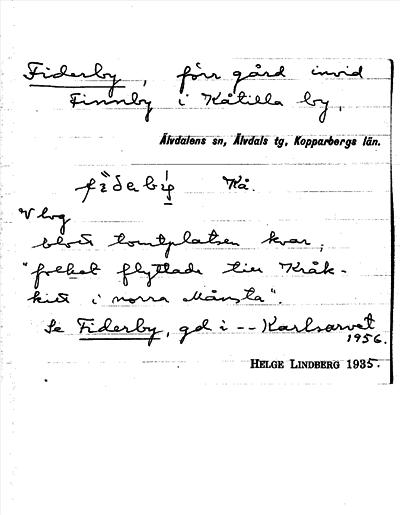 Fiderby, förr gård invid
Finnby i Kåtilla by,
Älvdalens sn, Älvdals tg, Kopparbergs län.
Kå.
blott tomtplatsen kvar;
"folket flyttade till Kråk-
kitt i norra Månsta".
Se Fiderby, gd i -- Karlsarvet
1956.
HELGE LINDBERG 1935.